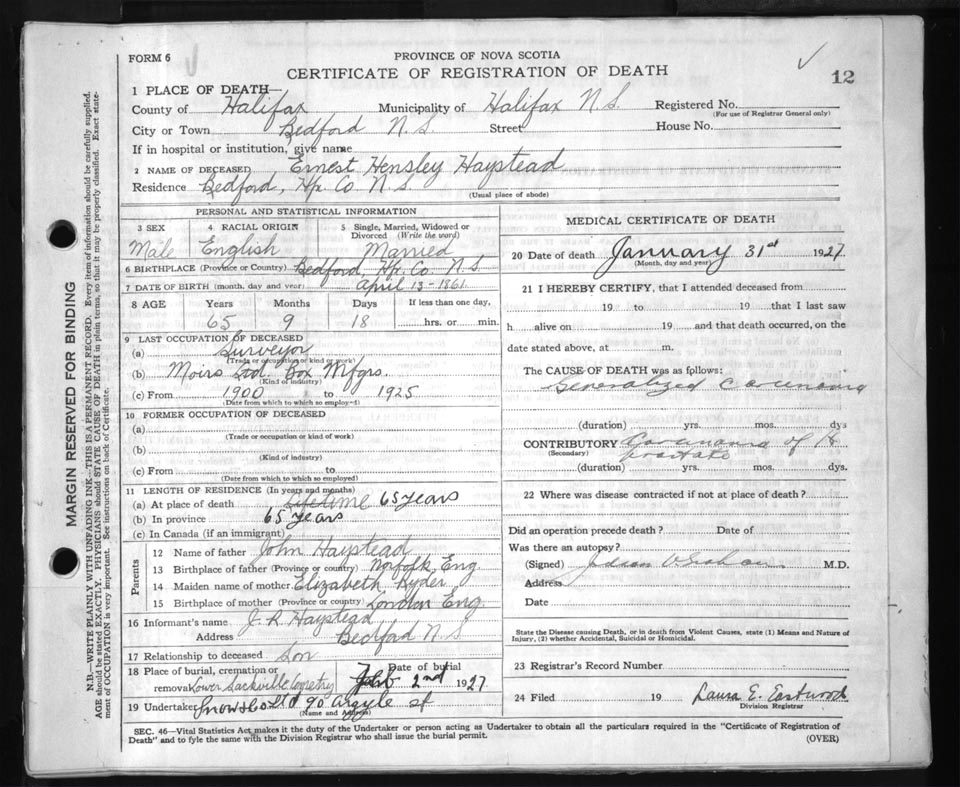 FORM 6
PROVINCE OF NOVA SCOTIA
CERTIFICATE OF REGISTRATION OF DEATH
12
1 PLACE OF DEATH—
County of Halifax Municipality of Halifax N.S. Registered No.
(For use of Registrar General only)
City or Town Bedford N.S. Street House No.
If in hospital or institution, give name
2 NAME OF DECEASED Ernest Hensley Haystead
Residence Bedford, Hfx Co N.S.
(Usual place of abode)
PERSONAL AND STATISTICAL INFORMATION
3 SEX 4 RACIAL ORIGIN 5 Single, Married, Widowed or Divorced (Write the word)
Male English Married
6 BIRTHPLACE (Province or Country) Bedford, Hfx. Co. N.S.
7 DATE OF BIRTH (month, day and year) April 13-1861
8 AGE Years Months Days If less than one day,
65 9 18 hrs. or min.
9 LAST OCCUPATION OF DECEASED
(a) Surveyor
(Trade or occupation or kind of work)
(b) Moirs Ltd. Box Mfgrs.
(Kind of industry)
(c) From 1900 to 1925
(Date from which to which so employed)
10 FORMER OCCUPATION OF DECEASED
(a)
(Trade or occupation or kind of work)
(b)
(Kind of industry)
(c) From to
(Date from which to which so employed)
11 LENGTH OF RESIDENCE (In years and months)
(a) At place of death Lifetime 65 years
(b) In province 65 years
(c) In Canada (if an immigrant)
Parents
12 Name of father John Haystead
13 Birthplace of father (Province or country) Norfolk Eng.
14 Maiden name of mother Elizabeth Ryder
15 Birthplace of mother (Province or country) London Eng.
16 Informant's name J. R. Haystead
Address Bedford N S
17 Relationship to deceased Son
18 Place of burial, cremation or removal Lower Sackville Date of burial Feb 2nd 1927
19 Undertaker Snow & Co Ltd 90 Argyle st
(Name and Address)
MEDICAL CERTIFICATE OF DEATH
20 Date of death January 31st 1927
(Month, day and year)
21 I HEREBY CERTIFY, that I attended deceased from
19 to 19 that I last saw
h alive on 19 and that death occurred, on the
date stated above, at m.
The CAUSE OF DEATH was as follows:
Generalized Carcinoma
(duration) yrs. mos. dys
CONTRIBUTORY Carcinoma of
(Secondary) prostate
(duration) yrs. mos. dys.
22 Where was disease contracted if not at place of death?
Did an operation precede death? Date of
Was there an autopsy?
(Signed) M.D.
Address
Date
State the Disease causing Death, or in death from Violent Causes, state (1) Means and Nature of
Injury, (2) whether Accidental, Suicidal or Homicidal.
23 Registrar's Record Number
24 Filed 19 Laura E. Eastwood
Division Registrar
SEC. 46—Vital Statistics Act makes it the duty of the Undertaker or person acting as Undertaker to obtain all the particulars required in the "Certificate of Registration of
Death" and to fyle the same with the Division Registrar who shall issue the burial permit. (OVER)
MARGIN RESERVED FOR BINDING
N.B.—WRITE PLAINLY WITH UNFADING INK—THIS IS A PERMANENT RECORD. Every item of information should be carefully supplied.
AGE should be stated EXACTLY. PHYSICIANS should STATE CAUSE OF DEATH in plain terms, so that it may be properly classified. Exact state-
ment of OCCUPATION is very important. See instructions on back of Certificate.